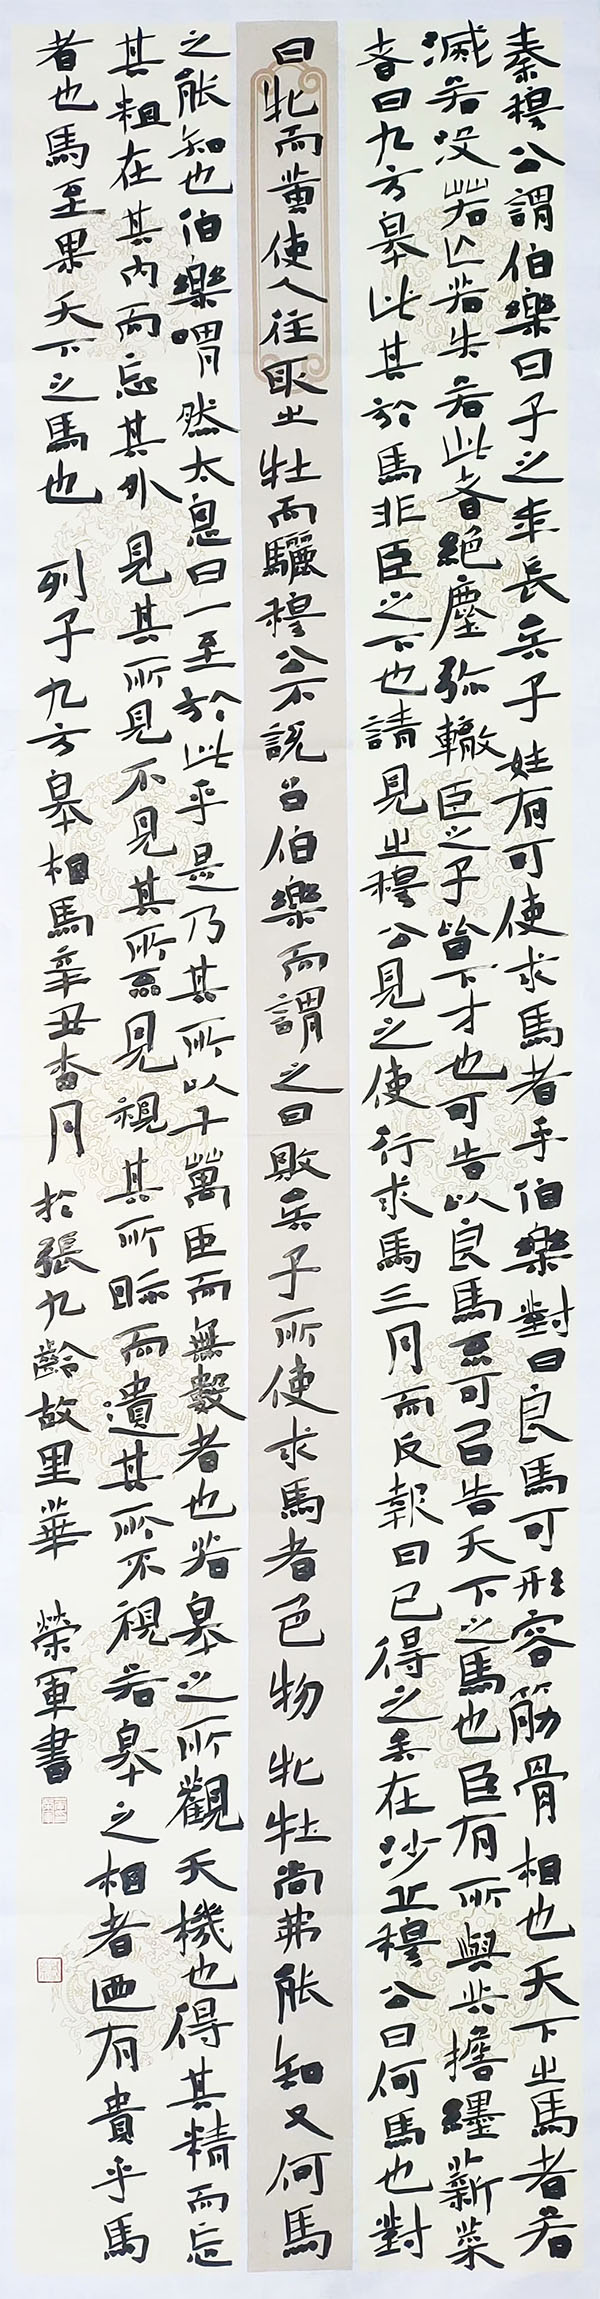 秦穆公謂伯樂曰子之年長矣子姓有可使求馬者乎伯樂對曰良馬可形容筋骨相也天下之馬者若
滅若没若亡若失若此者絶塵弥轍臣之子皆下才也可告以良馬不可以告天下之馬也臣有所與共擔纆薪菜
者曰九方皋此其於馬非臣之下也請見之穆公見之使行求馬三月而反報曰已得之矣在沙丘穆公曰何馬也對
曰牝而黄使人往取之牡而驪穆公不説召伯樂而謂之曰敗矣子所使求馬者色物牝牡尚弗能知又何馬
之能知也伯樂喟然太息曰一至於此乎是乃其所以千萬臣而無數者也若皋之所觀天機也得其精而忘
其粗在其内而忘其外見其所見不見其所不見視其所眎而遺其所不視若皋之相者廼有貴乎馬
者也馬至果天下之馬也 列子九方皋相馬辛丑杏月於張九齡故里華 榮軍書